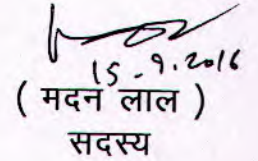 15.9.2016
( मदन लाल )
सदस्य